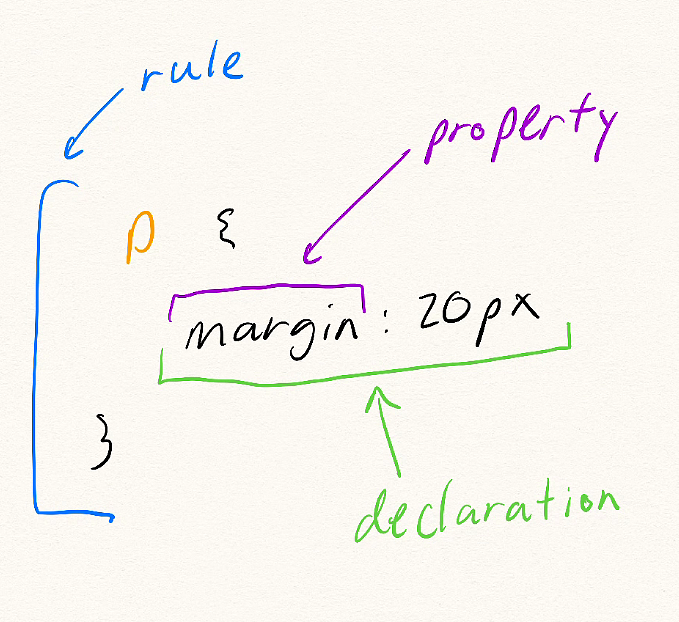 rule
property
p {
margin: 20px
}
declaration